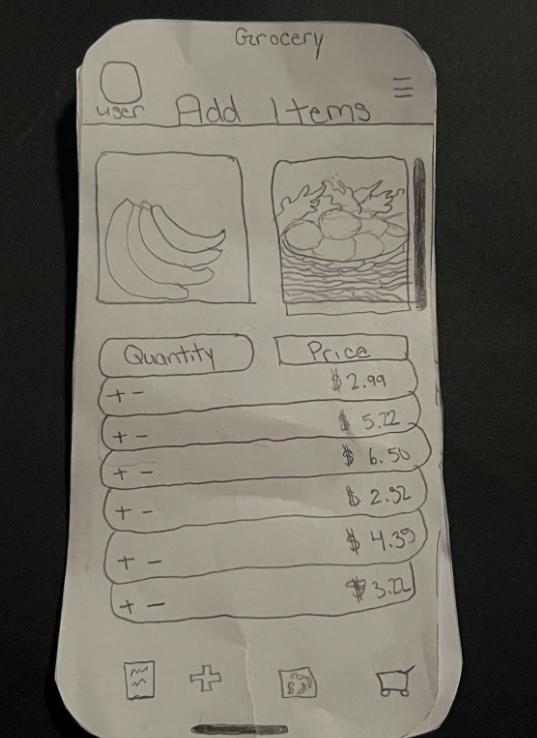 Grocery
user Add Items
Quantity Price
+ - $2.99
+ - $ 5.22
+ - $ 6.50
+ - $ 2.92
+ - $ 4.39
+ - $3.22